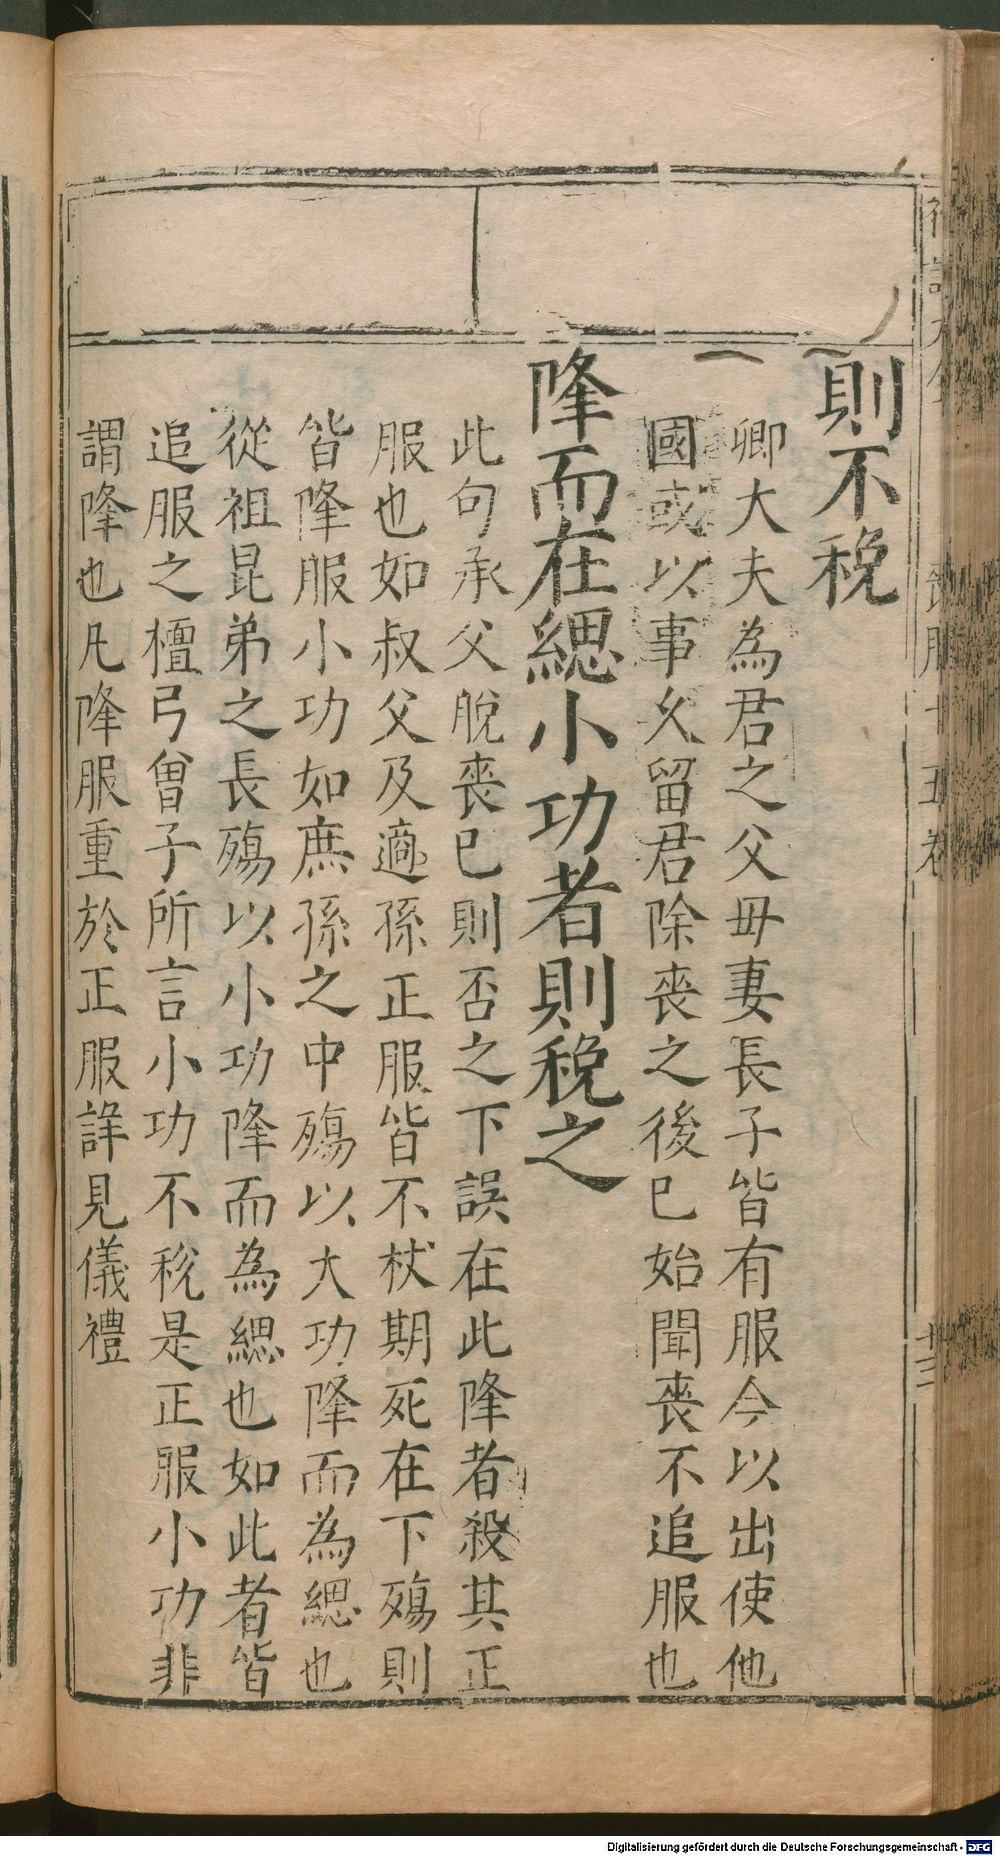 則不稅
卿大夫為君之父母妻長子皆有服今以出使他
國或以事久留君除喪之後已始聞喪不追服也
降而在緦小功者則稅之
此句承父脫喪已則否之下誤在此降者殺其正
服也如叔父及適孫正服皆不杖期死在下殤則
皆降服小功如庶孫之中殤以大功降而為緦也
從祖昆弟之長殤以小功降而為緦也如此者皆
追服之檀弓曾子所言小功不稅是正服小功非
謂降也凡降服重於正服詳見儀禮
喪服 十五卷
Digitalisierung gefördert durch die Deutsche Forschungsgemeinschaft - DFG